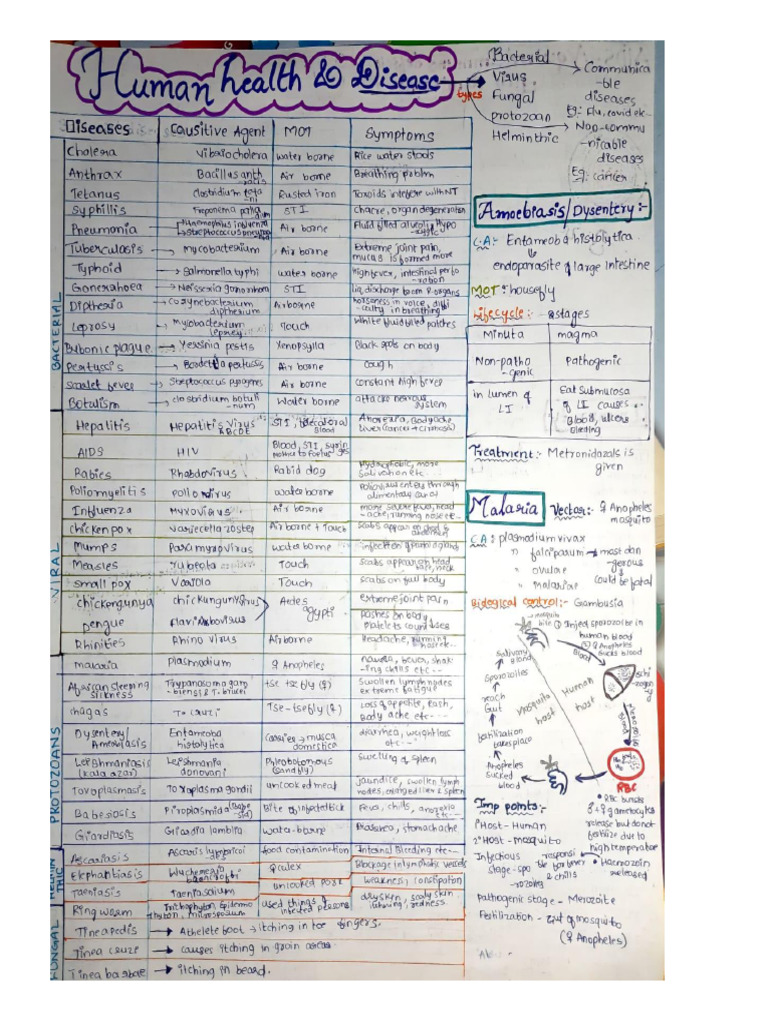 Human health & Disease
types
Bacterial
Virus
Fungal
protozoan
Helminthic
Communica
-ble
diseases
Eg:- Flu, covid etc-
Non-commu
-nicable
diseases
Eg:- cancer
Diseases Causitive Agent MOT Symptoms
BACTERIAL
Cholera Vibrio cholera water borne Rice water stools
Anthrax Bacillus anth racis Air borne Breathing problm
Tetanus Clostridium teta ni Rusted iron Toxoids interfere with NT
Syphillis STI Chacre, organ degeneration
Pneumonia Haemophilus influenza Streptococcus pneumo Air borne Fluid filled alveoli, Hypo
Tuberculosis → mycobacterium Air borne Extreme joint pain, mucus is formed more
Typhoid → Salmonella typhi water borne High fever, intestinal perfo -ration
Gonerahoea → STI liq discharge from R.organs
Diptheria → diptherium Airborne horseness in voice, diffi -culty in breathing
Leprosy → Mycobacterium leprey Touch White fluid filled patches
Bubonic plague → Yersinia pestis Xenopsylla Black spots on body
Pertussis → Bordetella pertussis Air borne Cough
Scarlet fever → Streptococcus pyogenes Air borne constant high fever
Botulism → clostridium botuli -num Water borne attacks nervous system
VIRAL
Hepatitis Hepatitis Virus ABCDE STI, Blood liver (cancer + cirrhosis)
AIDS HIV Blood, STI, syrin ges mother to foetus
Rabies Rhabdovirus Rabid dog Hydrophobic, more salivation etc.
Poliomyelitis polio virus water borne Poliovirus enters through alimentary canal
Influenza Myxovirus Air borne more severe fever, head -ache, running nose etc-
chicken pox varicella zoster Airborne + Touch scabs appear on chest &
Mumps Paramyxovirus water borne infection of parotid gland
Measles Rubeola Touch scabs appear on head, face, neck
small pox Variola Touch scabs on full body
chickengunya chickungunyavirus Aedes agypti extreme joint pain
Dengue flavi Arbovirus Rashes on body platelets count
Rhinities Rhino virus Airborne Headache, running nose etc-
PROTOZOANS
malaria plasmodium ♀ Anopheles
African sleeping sickness Trypanosoma gam -biens & T. brucei tse tse fly (♀) Swollen lymph nodes extreme fatigue
chagas T. cruzi Tse-tse fly (♀) Loss of appetite, rash, Body ache etc---
Dysentery/ Amoeviasis Entamoeba histolytica Carrier → musca domestica diarrhea, weight loss etc--
Leishmaniasis (kala azar) Leishmania donovani Phlebotomous (sandfly) Swelling of spleen
Toxoplasmasis Toxoplasma gondii uncooked meat jaundice, swollen lymph nodes, enlarged liver & spleen
Babesiosis Piroplasmida (Babe sia) Bite of infected tick Fever, chills, anorexia etc--
Giardiasis Giardia lamblia water borne stomachache
HELMIN THIC
Ascariasis Ascaris lumbricoi -des food contamination Internal Bleeding etc--
Elephantiasis Wuchereria bancrofti culex Blockage in lymphatic vessels
Taeniasis Taeniasolium uncooked pork weakness, constipation
FUNGAL
Ring worm Trichophyton, Epidermo phyton, microsporum used things of infected persons dry skin, scaly skin itching, redness.
Tinea pedis → Athelete foot → itching in toe fingers.
Tinea cruzi → causes itching in groin areas
Tinea barbae → itching in beard.
Amoebiasis/Dysentery:-
C.A:- Entamoeba histolytica
endoparasite of large intestine
MOT: housefly
Lifecycle:- 2 stages
Minuta magma
Non-patho -genic Pathogenic
in lumen of LI Eat submucosa of LI causes Blood, ulcers bleeding
Treatment:- Metronidazole is
given
Malaria Vector:- ♀ Anopheles
mosquito
C.A: plasmodium vivax
" falciparum → most dan
-gerous
" ovulae
" Malariae could be fatal
Biological control:- Gambusia
mosquito
bite ① Inject sporozoite in
human blood
② ♀ Anopheles
sucks blood
Blood
Salivary
Gland
Sporozoites
reach
Gut
fertilization
takes place
Anopheles
sucked
blood
Mosquito
host
Human
host
schi
-zogony
RBC
Imp points:-
1° Host - Human
2° Host - mosquito
Infectious
stage - spo
-rozoites
responsi
ble for fever
& chills
• RBC bursts
♂ + ♀ gametocytes
release but do not
fertilize due to
high temperatur
• Haemozoin
released
Pathogenic stage - Merozoite
Fertilization - Gut of mosquito
(♀ Anopheles)